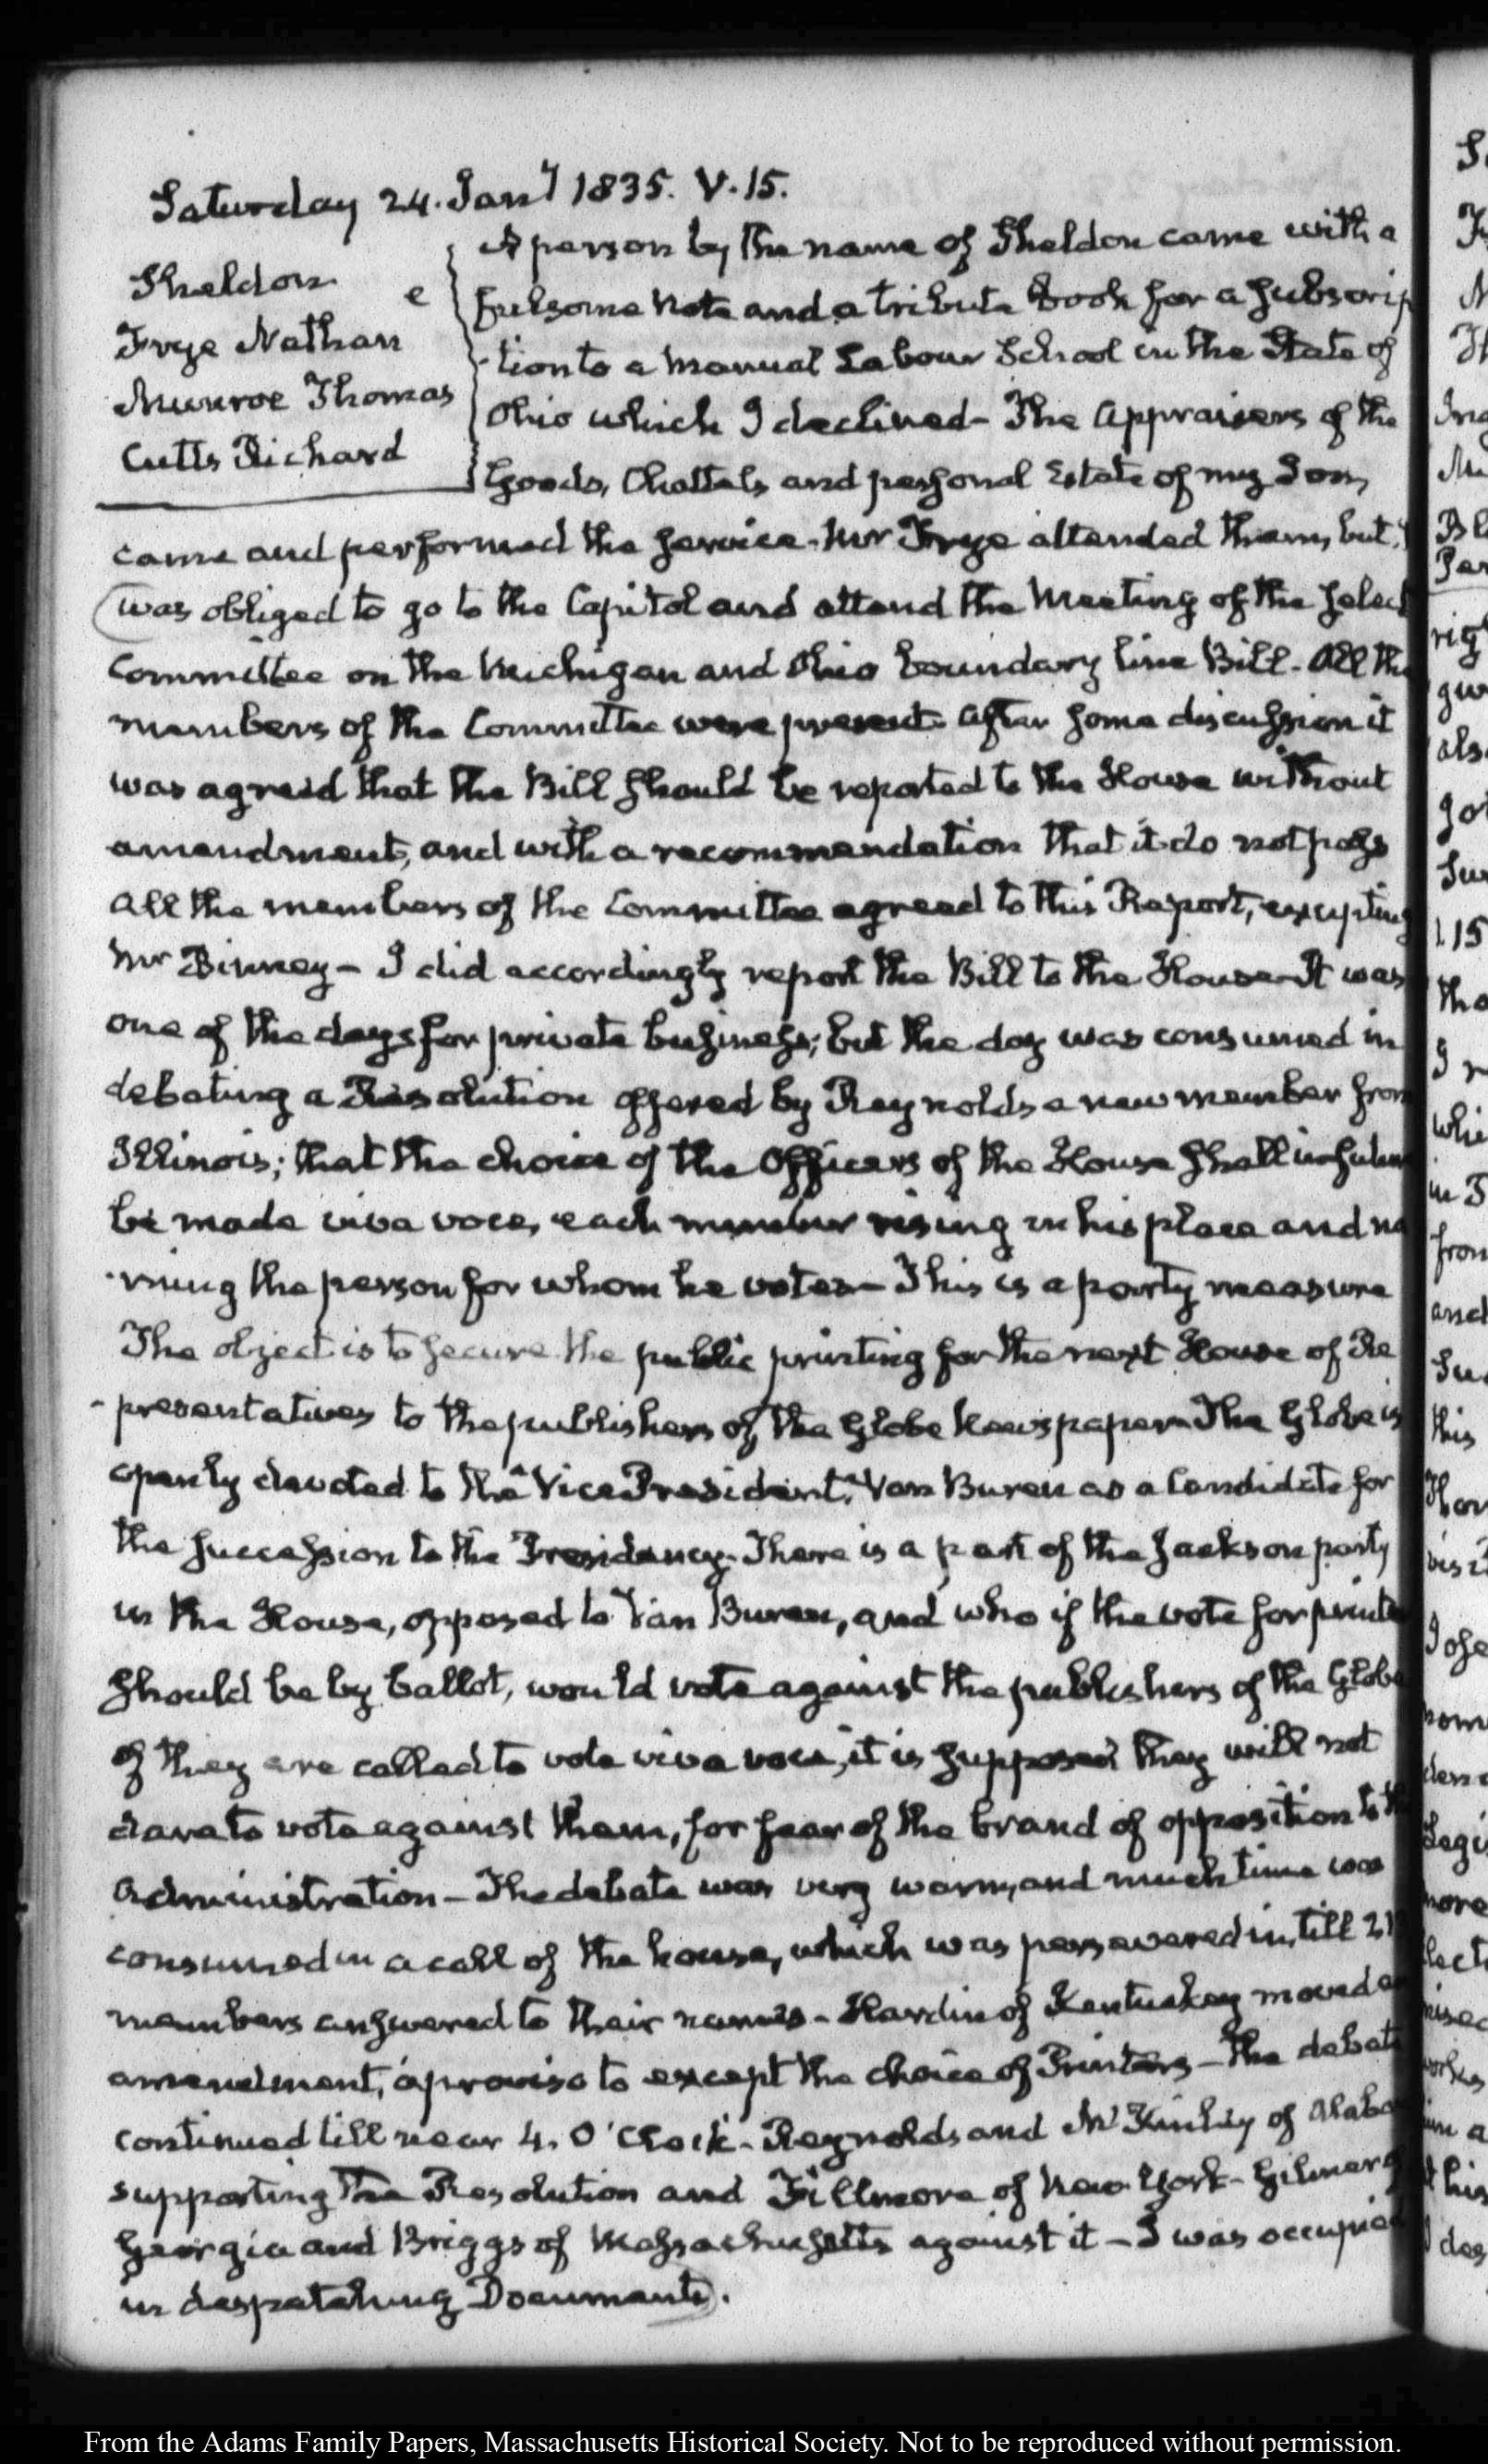 Saturday 24. Jany 1835. V.15.
Sheldon e
Frye Nathan
Munroe Thomas
Cutts Richard
A person by the name of Sheldon came with a
fulsome Note and a tribute Book for a subscrip
-tion to a Manual Labour School in the State of
Ohio which I declined— The Appraisers of the
Goods, Chattels and personal Estate of my Son,
came and performed the service. Mr Frye attended them, but
was obliged to go to the Capitol and attend the Meeting of the Select
Committee on the Michigan and Ohio boundary line Bill. All the
members of the Committee were present. After some discussion it
was agreed that the Bill should be reported to the House without
amendment, and with a recommendation that it do not pass
All the members of the Committee agreed to this Report, excepting
Mr Binney— I did accordingly report the Bill to the House— It was
one of the days for private business; but the day was consumed in
debating a Resolution offered by Reynolds a new member from
Illinois; that the choice of the Officers of the House shall in future
be made viva voce, each member rising in his place and na
-ming the person for whom he votes— This is a party measure
The object is to secure the public printing for the next House of Re
-presentatives to the publishers of the Globe Newspaper— The Globe is
openly devoted to the Vice President, Van Buren as a Candidate for
the succession to the Presidency. There is a part of the Jackson party
in the House, opposed to Van Buren, and who if the vote for printer
should be by ballot, would vote against the publishers of the Globe
If they are called to vote viva voce, it is supposed they will not
dare to vote against them, for fear of the brand of opposition to the
Administration— The debate was very warm, and much time was
consumed in a call of the house, which was persevered in, till
members answered to their names— Hardin of Kentuckey moved an
amendment, a proviso to except the choice of Printers— The debate
continued till near 4. O'Clock. Reynolds and McKinley of Alaba
supporting the Resolution and Fillmore of New-York— Gilmer of
Georgia and Briggs of Massachusetts against it— I was occupied
in despatching Documents.
From the Adams Family Papers, Massachusetts Historical Society. Not to be reproduced without permission.